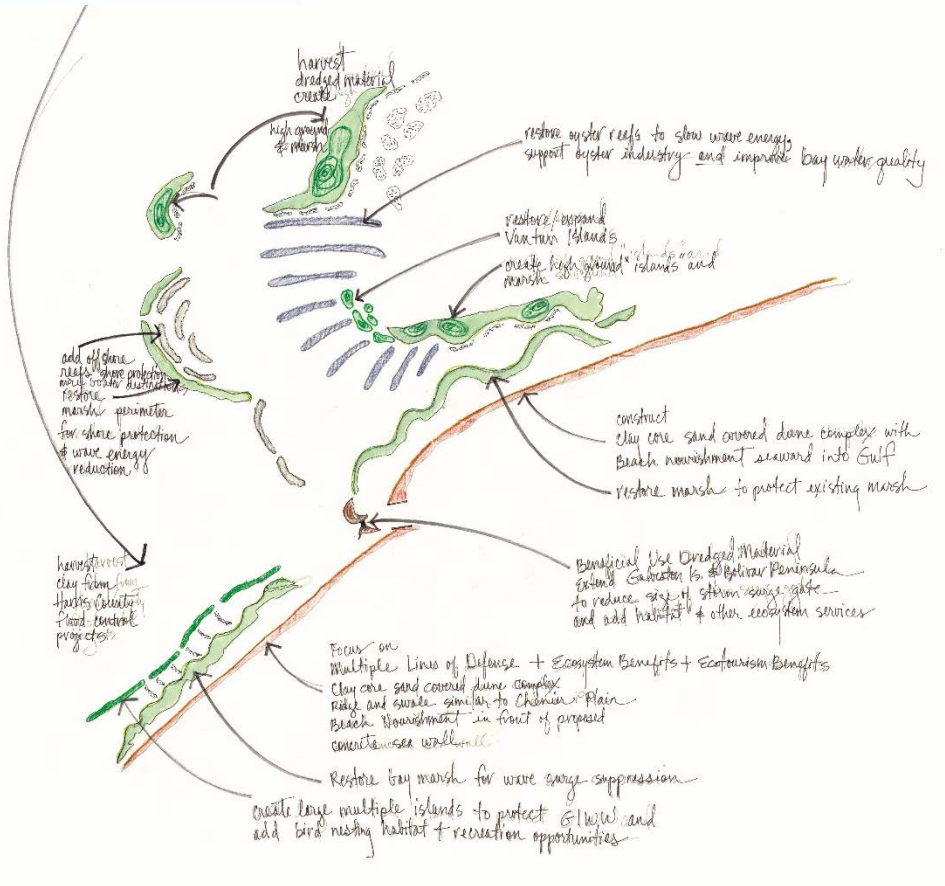 harvest
dredged material
create
high ground
& marsh
restore oyster reefs to slow wave energy,
support oyster industry and improve bay water quality
restore/expand
Vantun Islands
create high ground islands and
marsh
add offshore
reefs shore protection
more boater destinations
restore
marsh perimeter
for shore protection
& wave energy
reduction
construct
clay core sand covered dune complex with
Beach nourishment seaward into Gulf
restore marsh to protect existing marsh
harvest
clay from
Harris County
flood control
projects
Beneficial Use Dredged Material
Extend Galveston Is. & Bolivar Peninsula
to reduce size of storm surge gate
and add habitat & other ecosystem services
Focus on
Multiple Lines of Defense + Ecosystem Benefits + Ecotourism Benefits
Clay core sand covered dune complex
Ridge and swale similar to Chenier Plain
Beach Nourishment in front of proposed
concrete sea wall
Restore bay marsh for wave surge suppression
create large multiple islands to protect GIWW and
add bird nesting habitat + recreation opportunities